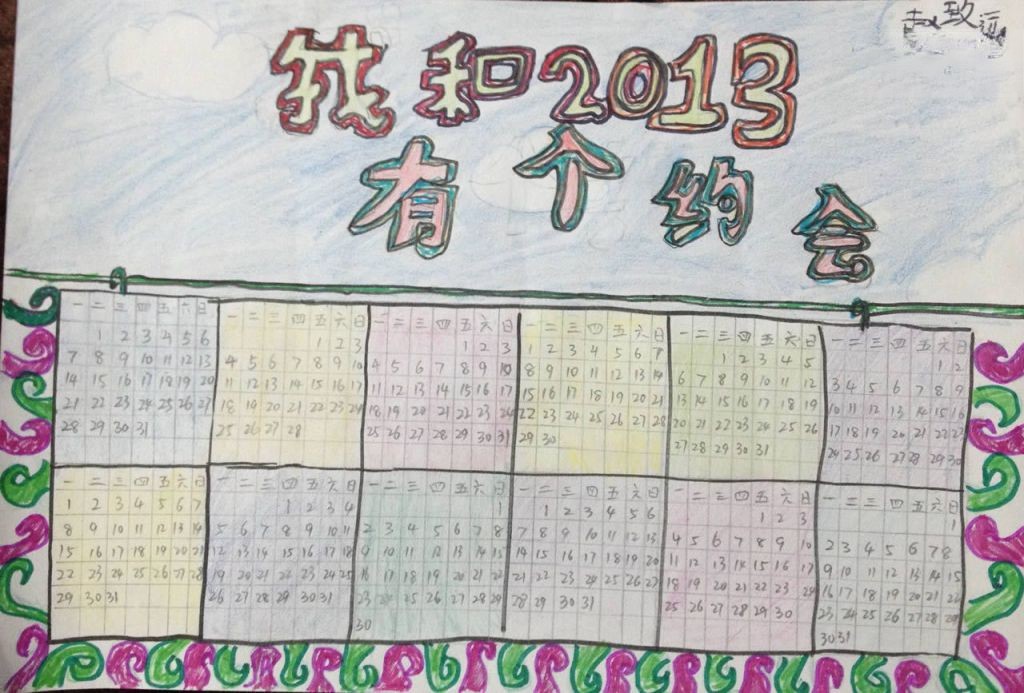 赵致远
我和2013
有个约会
一 二 三 四 五 六 日
1 2 3 4 5 6
7 8 9 10 11 12 13
14 15 16 17 18 19 20
21 22 23 24 25 26 27
28 29 30 31
一 二 三 四 五 六 日
1 2 3
4 5 6 7 8 9 10
11 12 13 14 15 16 17
18 19 20 21 22 23 24
25 26 27 28
一 二 三 四 五 六 日
1 2 3
4 5 6 7 8 9 10
11 12 13 14 15 16 17
18 19 20 21 22 23 24
25 26 27 28 29 30 31
一 二 三 四 五 六 日
1 2 3 4 5 6 7
8 9 10 11 12 13 14
15 16 17 18 19 20 21
22 23 24 25 26 27 28
29 30
一 二 三 四 五 六 日
1 2 3 4 5
6 7 8 9 10 11 12
13 14 15 16 17 18 19
20 21 22 23 24 25 26
27 28 29 30 31
一 二 三 四 五 六 日
1 2
3 4 5 6 7 8 9
10 11 12 13 14 15 16
17 18 19 20 21 22 23
24 25 26 27 28 29 30
一 二 三 四 五 六 日
1 2 3 4 5 6 7
8 9 10 11 12 13 14
15 16 17 18 19 20 21
22 23 24 25 26 27 28
29 30 31
一 二 三 四 五 六 日
1 2 3 4
5 6 7 8 9 10 11
12 13 14 15 16 17 18
19 20 21 22 23 24 25
26 27 28 29 30 31
一 二 三 四 五 六 日
1
2 3 4 5 6 7 8
9 10 11 12 13 14 15
16 17 18 19 20 21 22
23 24 25 26 27 28 29
30
一 二 三 四 五 六 日
1 2 3 4 5 6
7 8 9 10 11 12 13
14 15 16 17 18 19 20
21 22 23 24 25 26 27
28 29 30 31
一 二 三 四 五 六 日
1 2 3
4 5 6 7 8 9 10
11 12 13 14 15 16 17
18 19 20 21 22 23 24
25 26 27 28 29 30
一 二 三 四 五 六 日
1
2 3 4 5 6 7 8
9 10 11 12 13 14 15
16 17 18 19 20 21 22
23 24 25 26 27 28 29
30 31